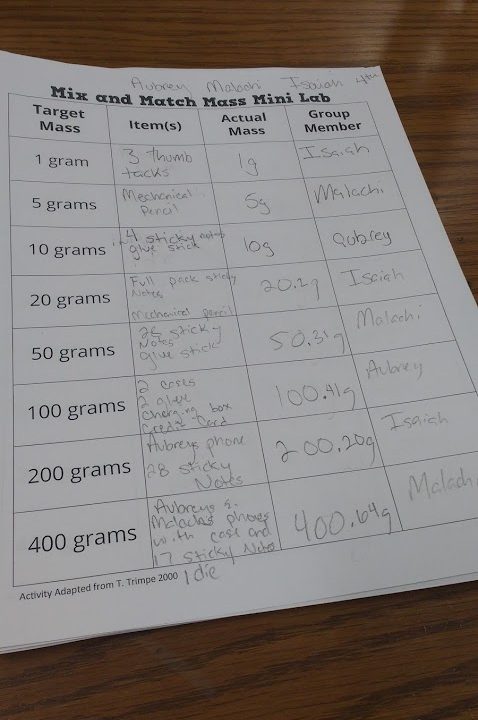 Aubrey Malachi Isaiah 4th
Mix and Match Mass Mini Lab
Target Mass
Item(s)
Actual Mass
Group Member
1 gram
3 thumb
tacks
1g
Isaiah
5 grams
Mechanical
Pencil
5g
Malachi
10 grams
4 sticky notes
glue stick
10g
Aubrey
20 grams
Full pack sticky
Notes
Mechanical pencil
20.2g
Isaiah
50 grams
28 sticky
Notes
glue stick
50.31g
Malachi
100 grams
2 cases
2 glue
Charging box
Credit Card
100.41g
Aubrey
200 grams
Aubreys phone
28 sticky
Notes
200.20g
Isaiah
400 grams
Aubreys &
Malachis phones
with case and
17 sticky Notes
1 die
400.64g
Malachi
Activity Adapted from T. Trimpe 2000